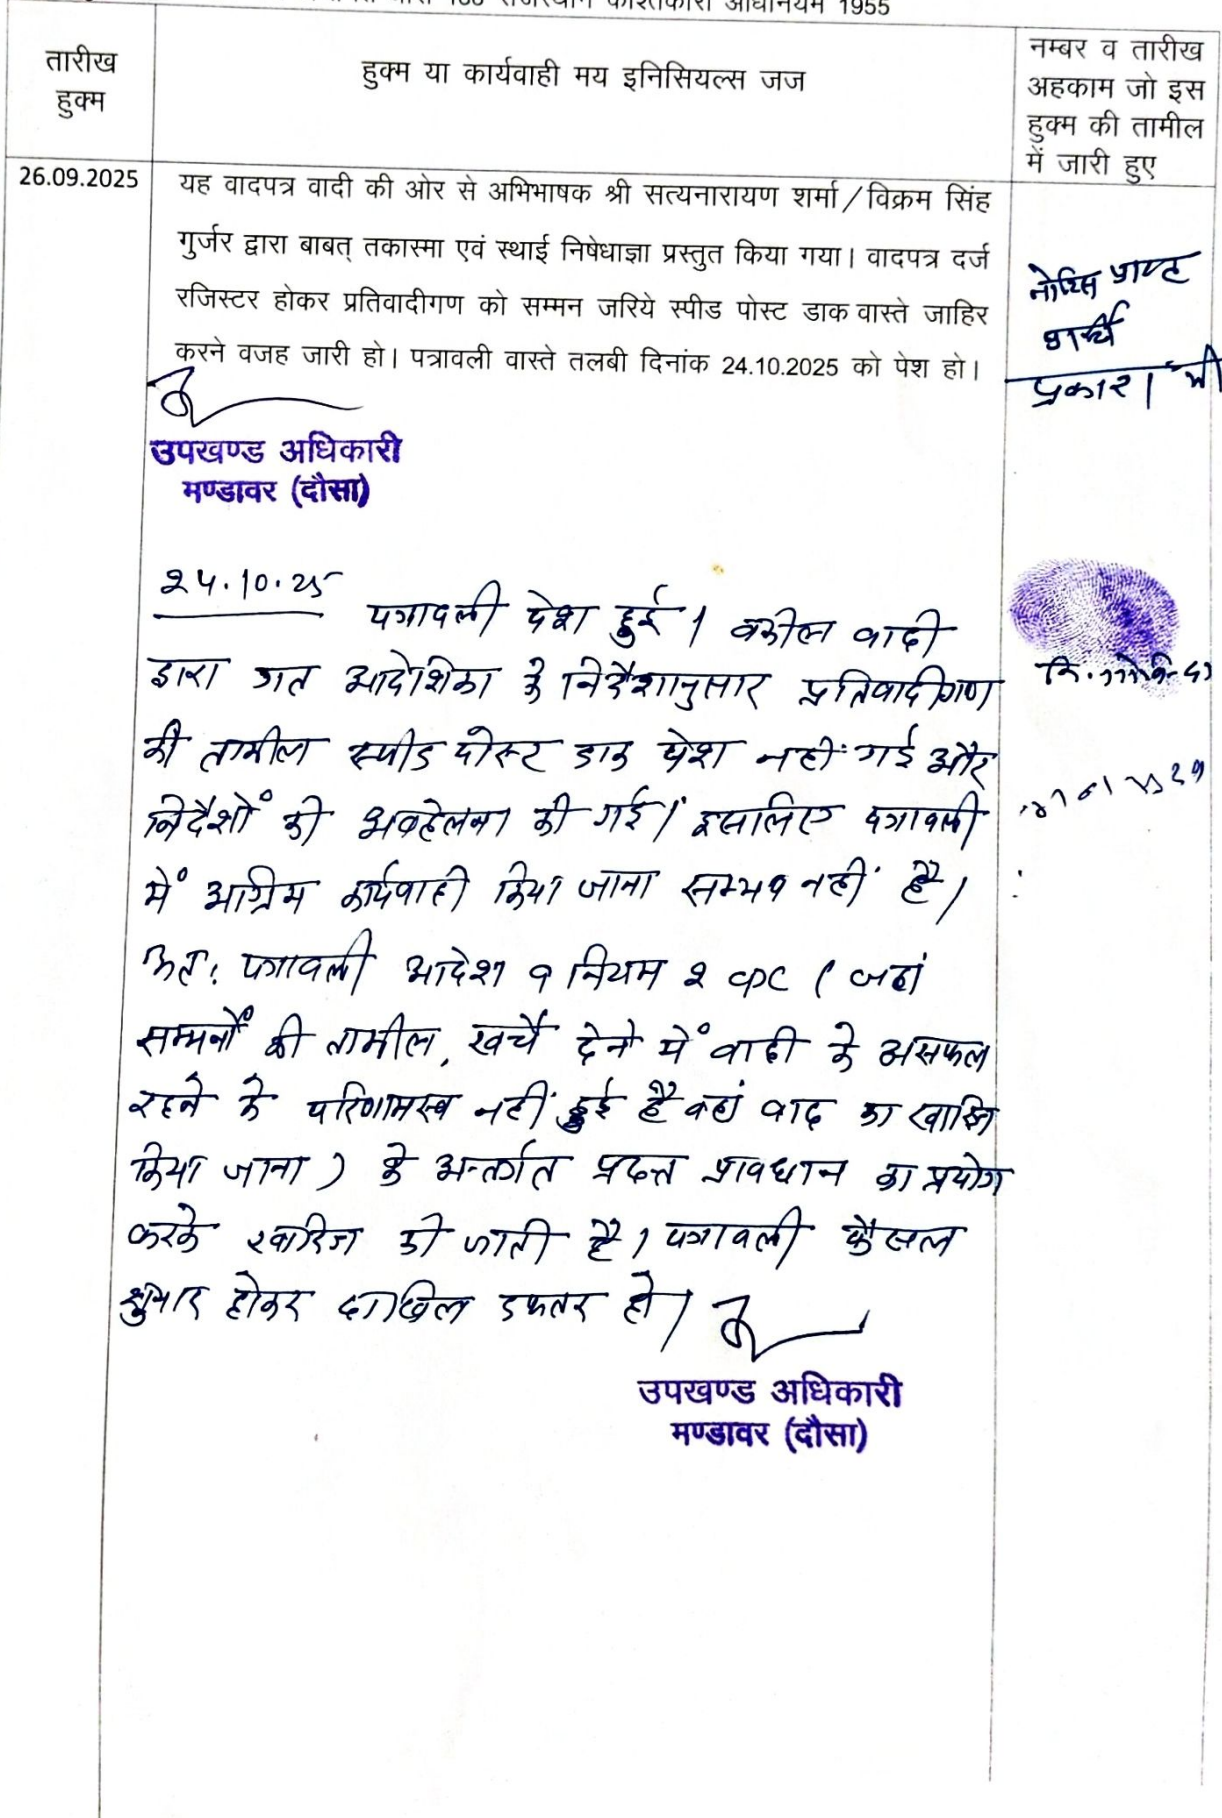 राजस्थान काश्तकारी अधिनियम 1955
तारीख
हुक्म
हुक्म या कार्यवाही मय इनिसियल्स जज
नम्बर व तारीख
अहकाम जो इस
हुक्म की तामील
में जारी हुए
26.09.2025
यह वादपत्र वादी की ओर से अभिभाषक श्री सत्यनारायण शर्मा/विक्रम सिंह
गुर्जर द्वारा बाबत् तकास्मा एवं स्थाई निषेधाज्ञा प्रस्तुत किया गया। वादपत्र दर्ज
रजिस्टर होकर प्रतिवादीगण को सम्मन जरिये स्पीड पोस्ट डाक वास्ते जाहिर
करने वजह जारी हो। पत्रावली वास्ते तलबी दिनांक 24.10.2025 को पेश हो।
उपखण्ड अधिकारी
मण्डावर (दौसा)
नोटिस
प्रकार।
24.10.25
पत्रावली पेश हुई। वकील वादी
द्वारा गत आदेशिका के निर्देशानुसार प्रतिवादीगण
की तामील स्पीड पोस्ट डाक पेश नहीं गई और
निर्देशों की अवहेलना की गई। इसलिए पत्रावली
में अग्रिम कार्यवाही किया जाना सम्भव नहीं है।
अतः पत्रावली आदेश 9 नियम 2 CPC (जहां
सम्मनों की तामील, खर्चे देने में वादी के असफल
रहने के परिणामस्व नहीं हुई है वहां वाद का खारिज
किया जाना) के अन्तर्गत प्रदत्त प्रावधान का प्रयोग
करके खारिज की जाती है। पत्रावली फैसल
शुमार होकर दाखिल दफ्तर हो।
उपखण्ड अधिकारी
मण्डावर (दौसा)